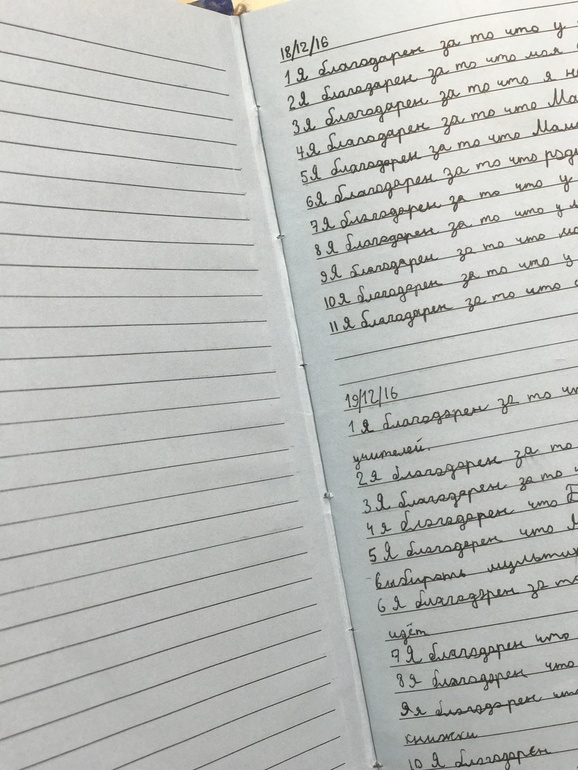 18/12/16
1 Я благодарен за то что у
2 Я благодарен за то что моя
3 Я благодарен за то что я
4 Я благодарен за то что
5 Я благодарен за то что
6 Я благодарен за то что
7 Я благодарен за то что у
8 Я благодарен за то что у
9 Я благодарен за то что
10 Я благодарен за то что у
11 Я благодарен за то что
19/12/16
1 Я благодарен за то
учителей.
2 Я благодарен за то
3 Я благодарен за то
4 Я благодарен что
5 Я благодарен что
выбирать
6 Я благодарен за
идёт
7 Я благодарен что
8 Я благодарен что
9 Я благодарен
книжки
10 Я благодарен